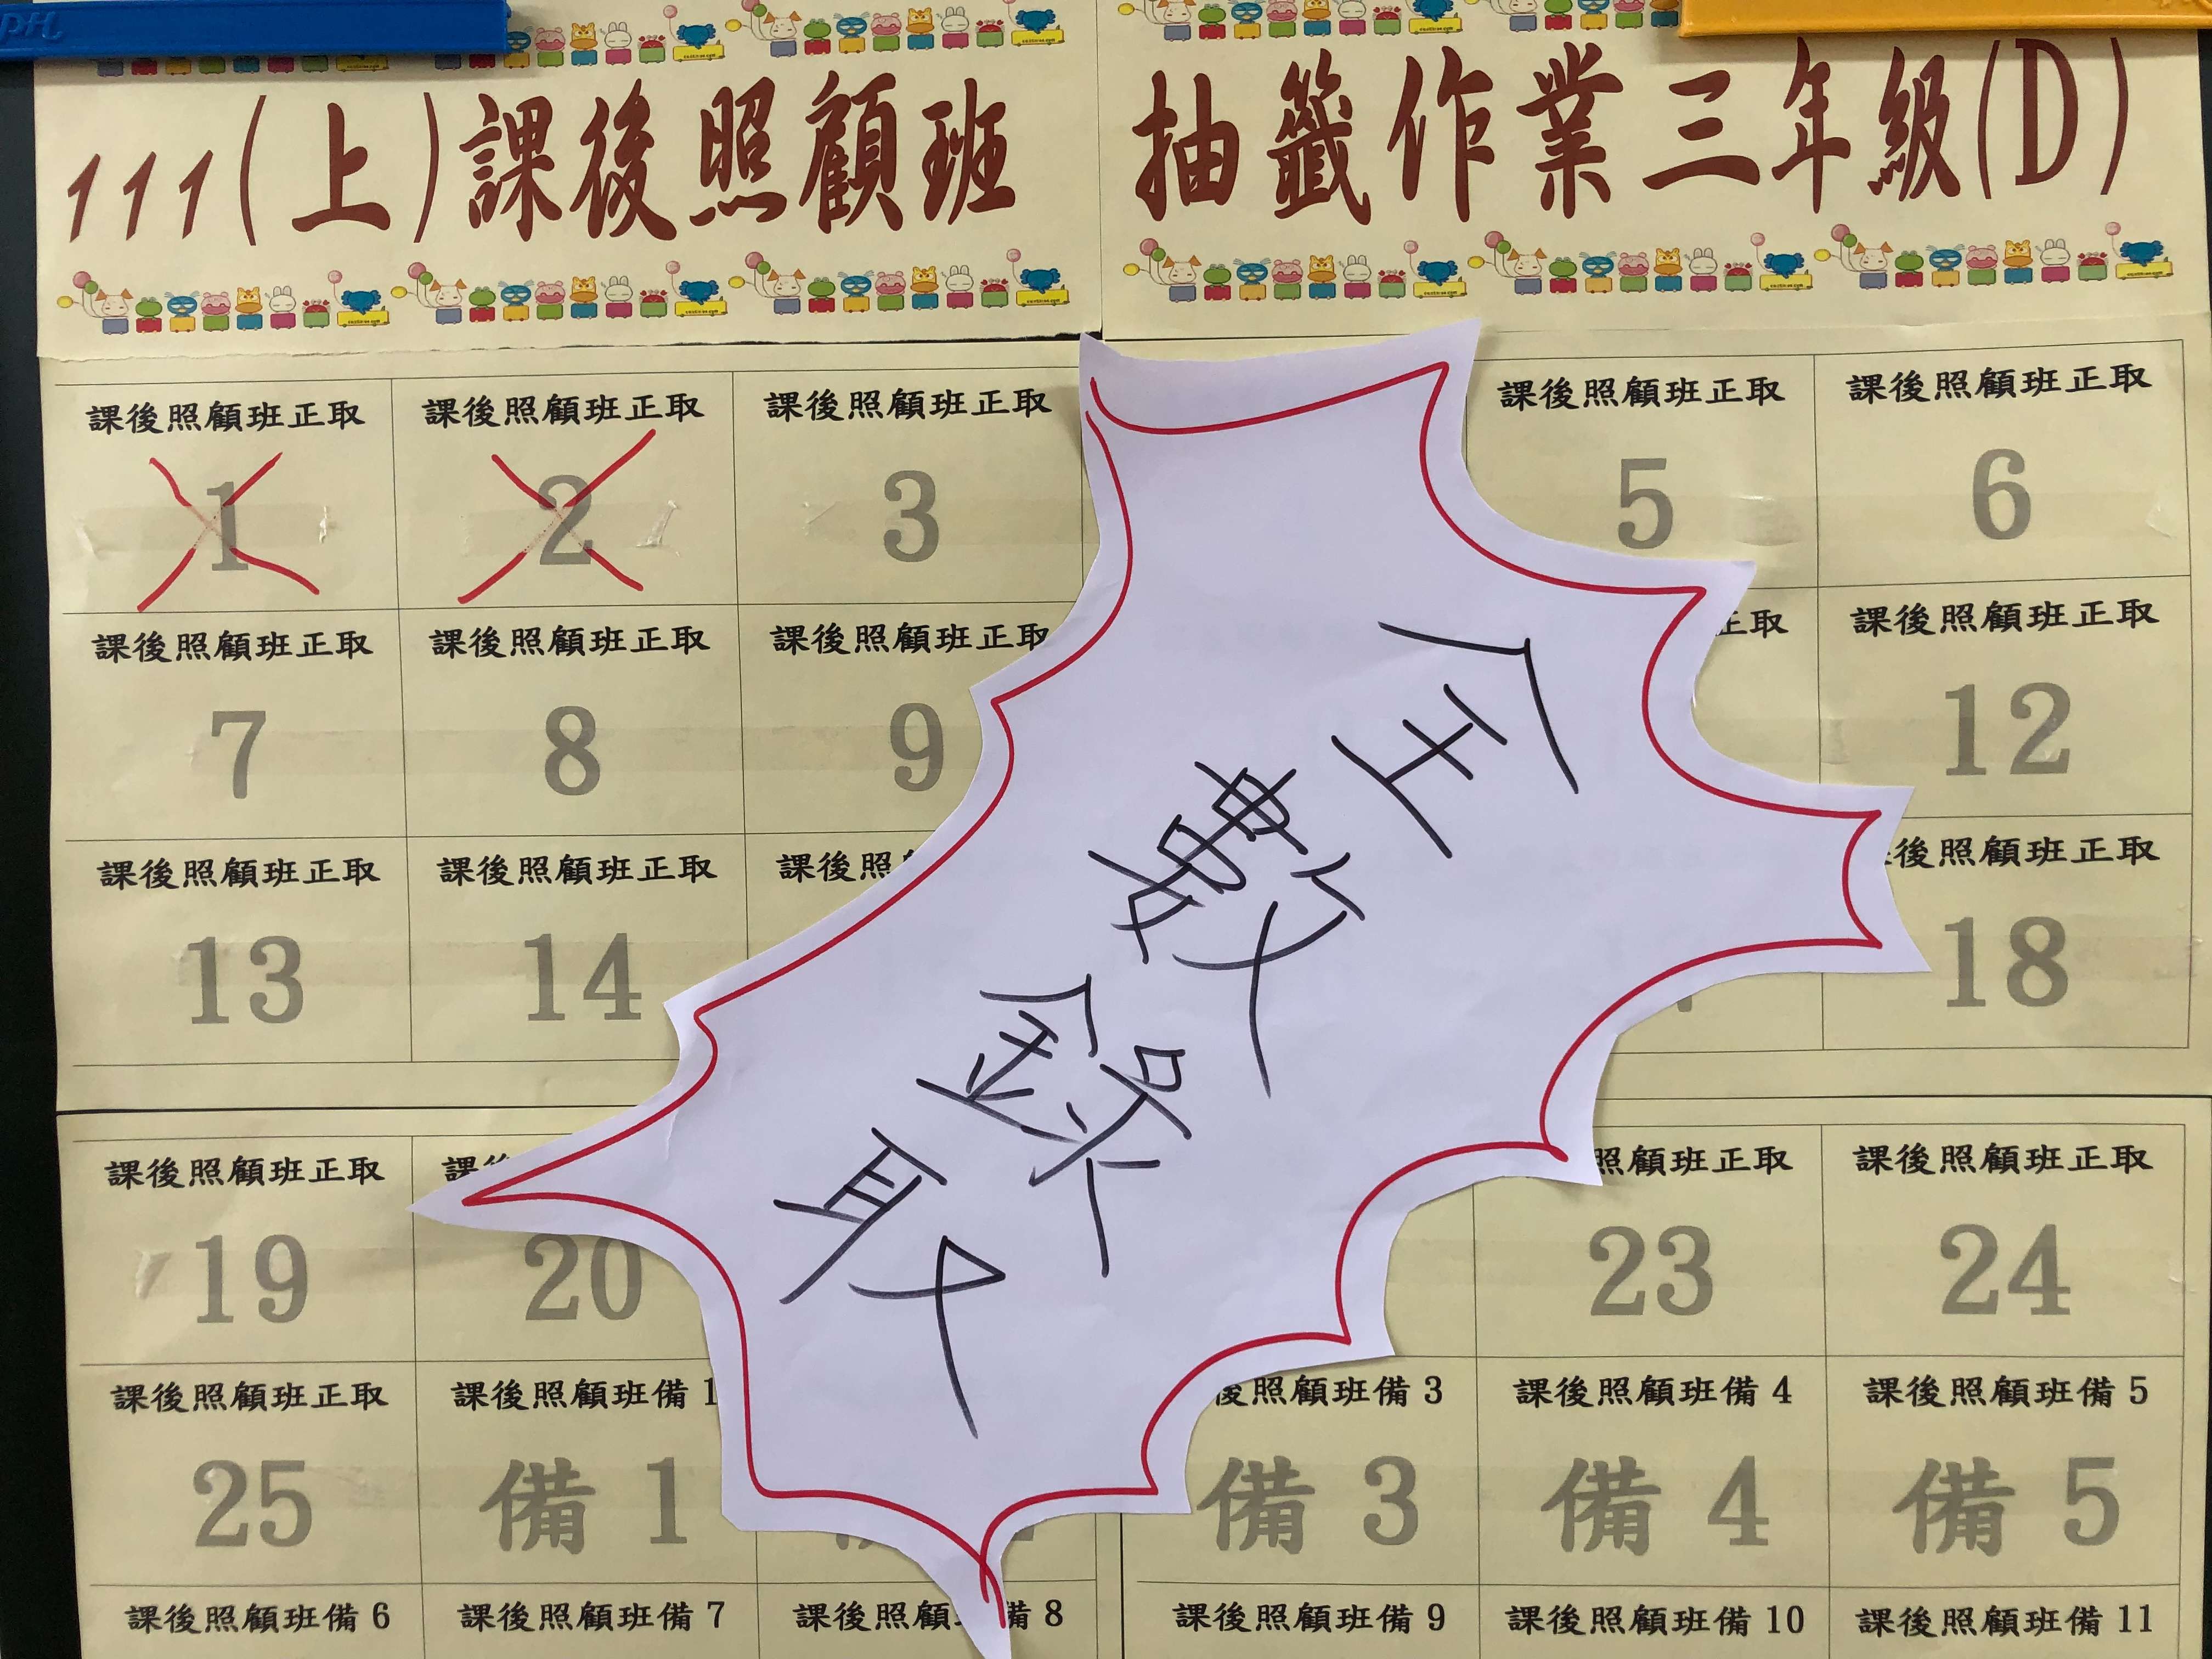 111(上)課後照顧班 抽籤作業三年級(D)
課後照顧班正取 課後照顧班正取 課後照顧班正取 課後照顧班正取 課後照顧班正取
1 2 3 5 6
課後照顧班正取 課後照顧班正取 課後照顧班正取 正取 課後照顧班正取
7 8 9 12
課後照顧班正取 課後照顧班正取 課後照 後照顧班正取
13 14 18
全數錄取
課後照顧班正取 課 照顧班正取 課後照顧班正取
19 20 23 24
課後照顧班正取 課後照顧班備 1 後照顧班備 3 課後照顧班備 4 課後照顧班備 5
25 備 1 備 3 備 4 備 5
課後照顧班備 6 課後照顧班備 7 課後照顧 備 8 課後照顧班備 9 課後照顧班備 10 課後照顧班備 11